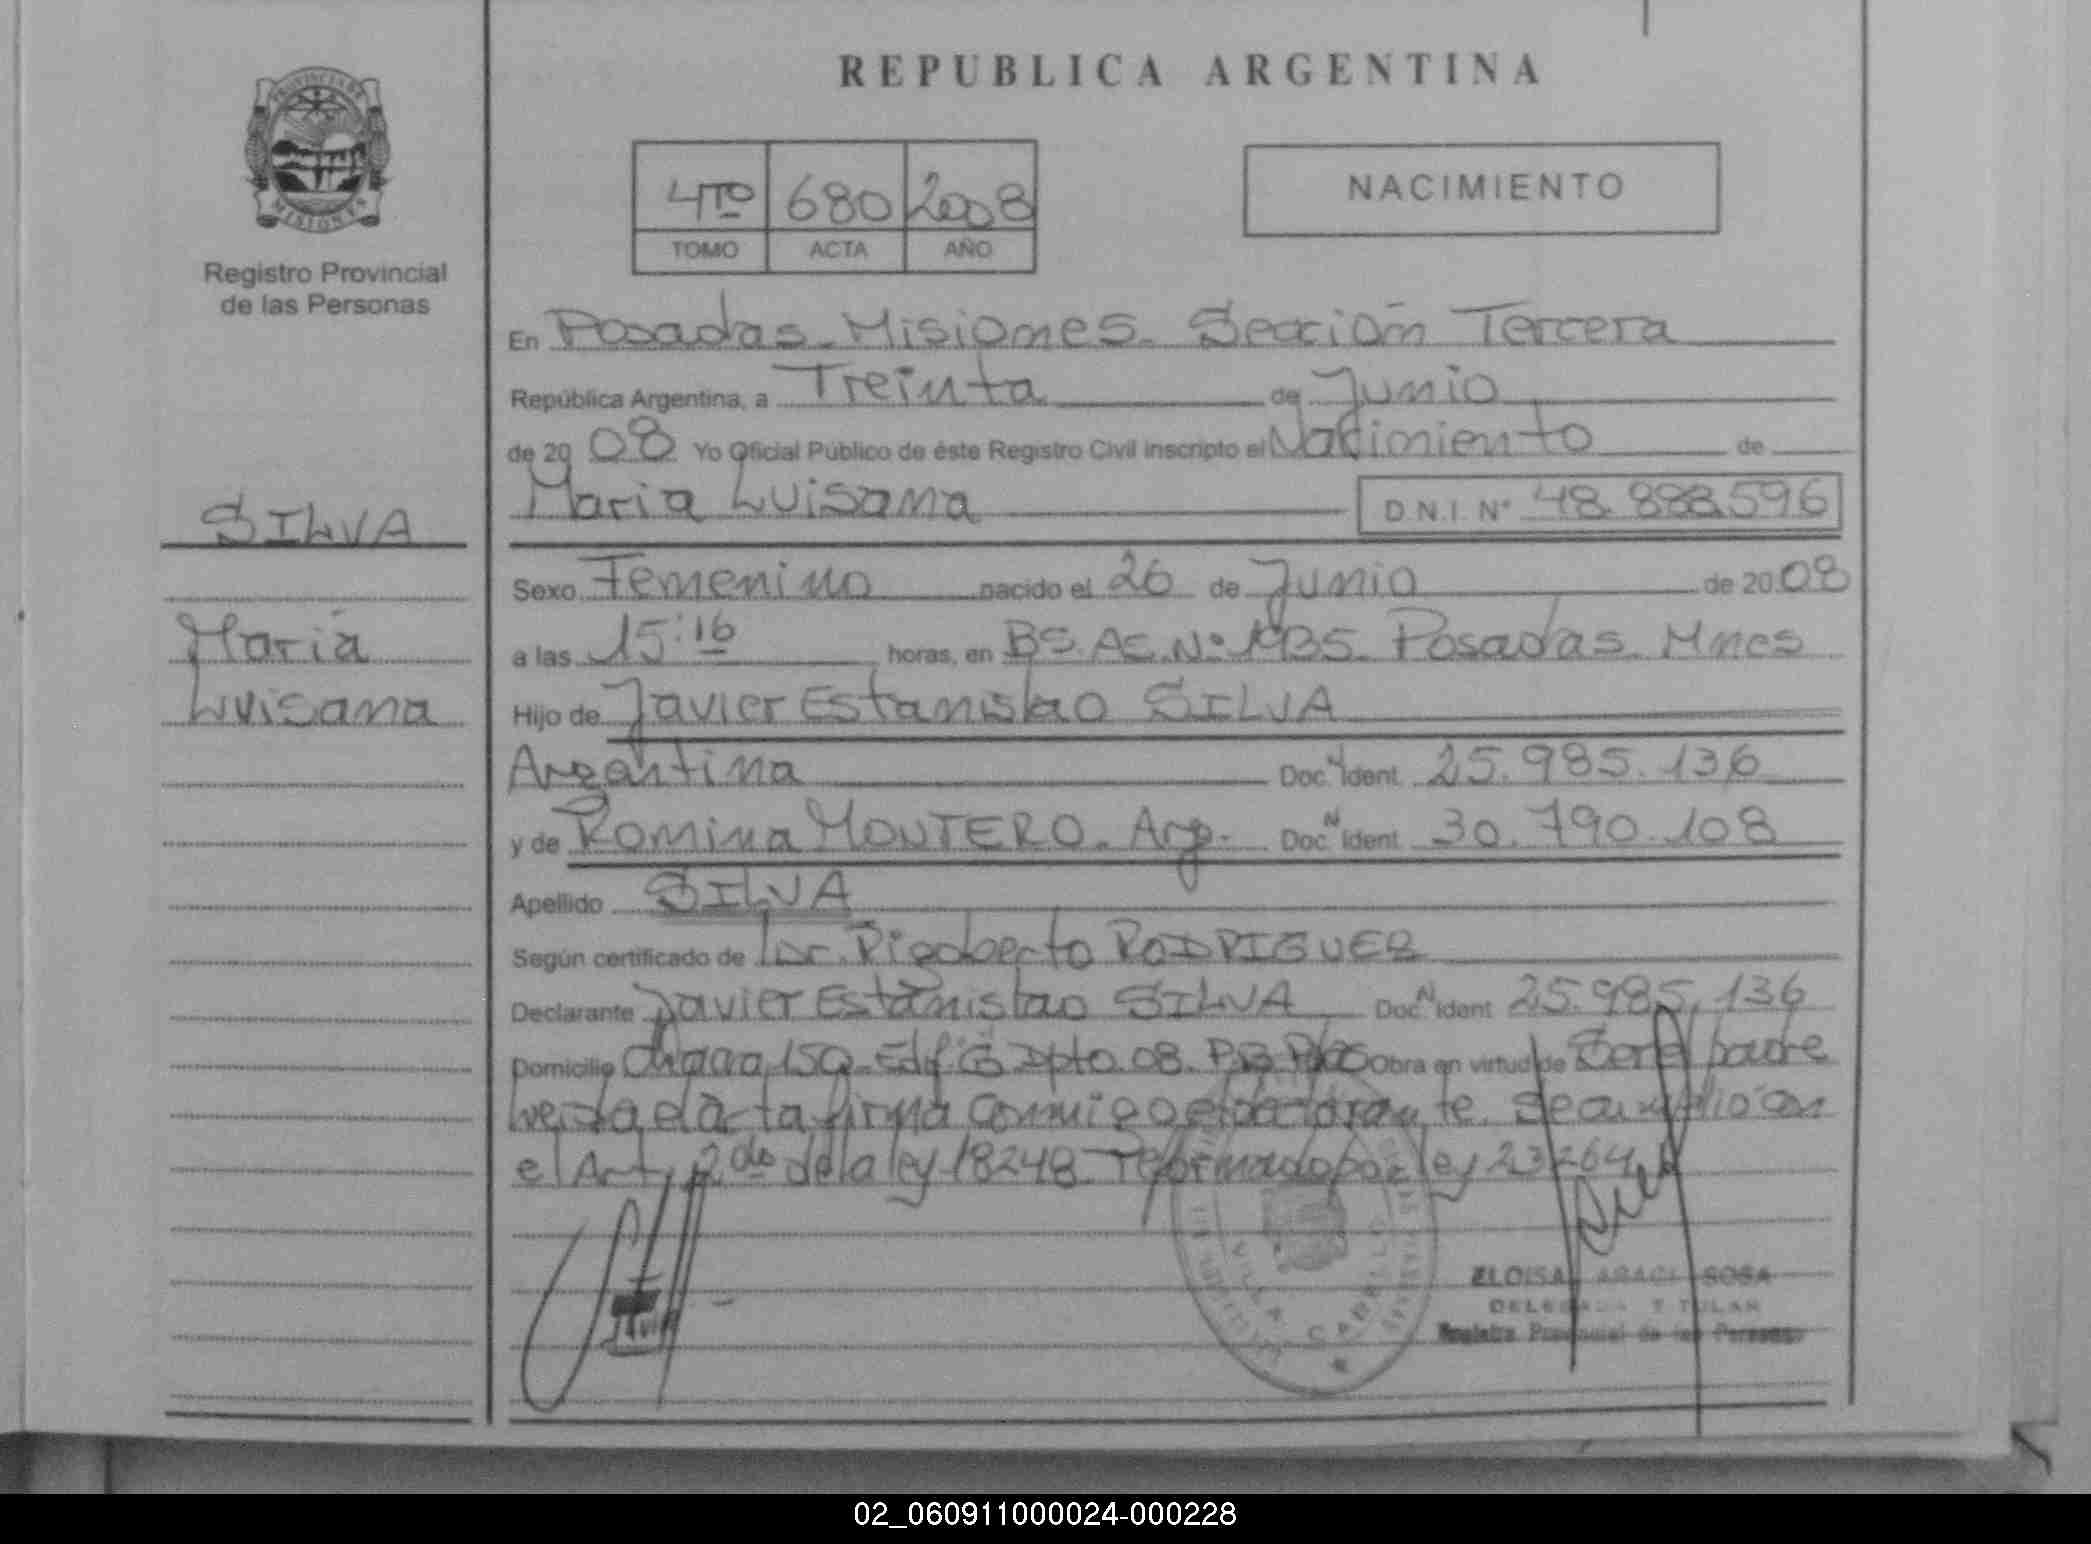 REPUBLICA ARGENTINA
PROVINCIA DE
MISIONES
Registro Provincial
de las Personas
4TO 680 2008
TOMO ACTA AÑO
NACIMIENTO
En Posadas. Misiones. Sección Tercera
República Argentina, a Treinta de Junio
de 20 08 Yo Oficial Público de éste Registro Civil inscripto el Nacimiento de
Maria Luisana D.N.I. Nº 48.888.596
SILVA
Sexo Femenino nacido el 26 de Junio de 20 08
Maria
a las 15:16 horas, en BS. AS. Nº 1935 Posadas. Mnes
Luisana
Hijo de Javier Estanislao SILVA
Argentina Doc. N Ident. 25.985.136
y de Romina MONTERO. Arg. Doc. N Ident. 30.790.108
Apellido SILVA
Según certificado de Rigoberto RODRIGUEZ
Declarante Javier Estanislao SILVA Doc. N Ident 25.985.136
Domicilio Chacra 150. Edif. Dpto. 08. PB Obra en virtud de Ser el padre
leida el acta firma conmigo el declarante. Se cumplio con
el Art. 2do de la ley 18248 reformado por ley 23264
VILLA CABELLO
ELOISA ARACI SOSA
DELEGADA TITULAR
Registro Provincial de las Personas
02_060911000024-000228